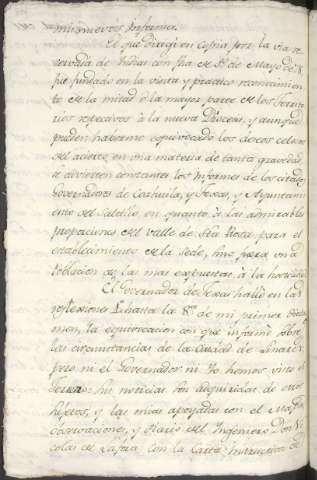 mis nuevos Informes.
El que dirigi en Copia por la via re-
servada de Indias con fha de 8 de Mayo de
fue fundado en la visita y practico reconocimien-
to de la mitad o la mayor parte de los Territo-
rios respectivos à la nueva Diocesis, y aunque
pueden haberme equivocado los deseos celosos
del acierto en una materia de tanta gravedad
se advierten constantes los Informes de los citados
Governadores de Coahuila, y Texas, y Ayuntami-
ento del Saltillo en quanto à las admirables
proporciones del valle de Sta Rosa para el
establecimiento de la Sede, y una
Poblacion de las mas expuestas à la hostilidad
El Governador de Texas halló en las
reflexiones hasta la 8a de mi primer Dicta-
men, la equivocacion con que informé sobre
las circunstancias de la Ciudad de Linares
pero ni el Governador ni Yo hemos visto el
terreno: Sus noticias son adquiridas de otros
Sujetos, y las mias apoyadas con el
observaciones, y Diario del Ingeniero Don Ni-
colas de Lafora, con la Carta, Instructiva de